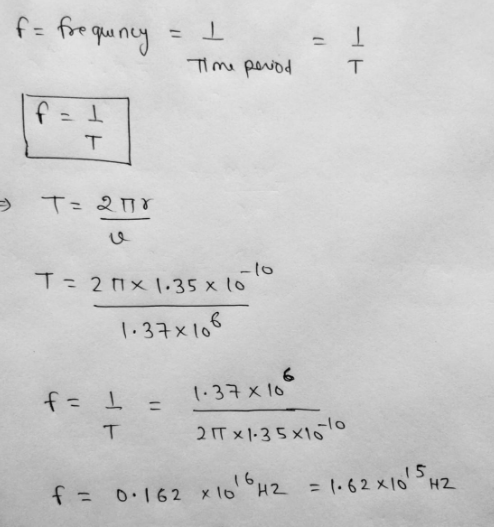 f = frequency = 1/Time period = 1/T
f = 1/T
⇒ T = 2πr/v
T = 2π × 1.35 × 10^-10 / 1.37 × 10^6
f = 1/T = 1.37 × 10^6 / 2π × 1.35 × 10^-10
f = 0.162 × 10^16 HZ = 1.62 × 10^15 HZ